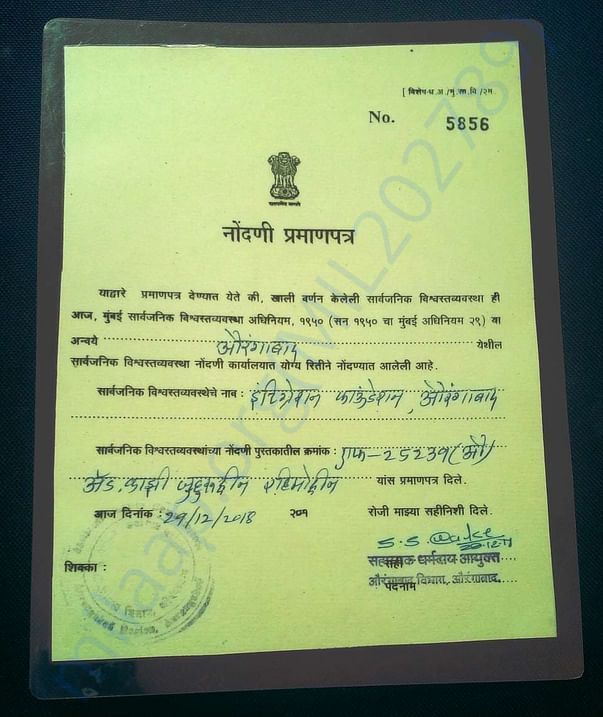 [ विशेष-ध.आ./मु.सा.वि./२म
No. 5856
नोंदणी प्रमाणपत्र
याद्वारे प्रमाणपत्र देण्यात येते की, खाली वर्णन केलेली सार्वजनिक विश्वस्तव्यवस्था ही
आज, मुंबई सार्वजनिक विश्वस्तव्यवस्था अधिनियम, १९५० (सन १९५० चा मुंबई अधिनियम २९) या
अन्वये औरंगाबाद येथील
सार्वजनिक विश्वस्तव्यवस्था नोंदणी कार्यालयात योग्य रितीने नोंदण्यात आलेली आहे.
सार्वजनिक विश्वस्तव्यवस्थेचे नाव : इंटिग्रेशन फाऊंडेशन, औरंगाबाद
सार्वजनिक विश्वस्तव्यवस्थांच्या नोंदणी पुस्तकातील क्रमांक : एफ-25239(औ)
ॲड. काझी यांस प्रमाणपत्र दिले.
आज दिनांक : 29/12/2018 २०१ रोजी माझ्या सहीनिशी दिले.
S.S.
सही
सहाय्यक धर्मादाय आयुक्त
औरंगाबाद विभाग, औरंगाबाद.
पदनाम
शिक्का :